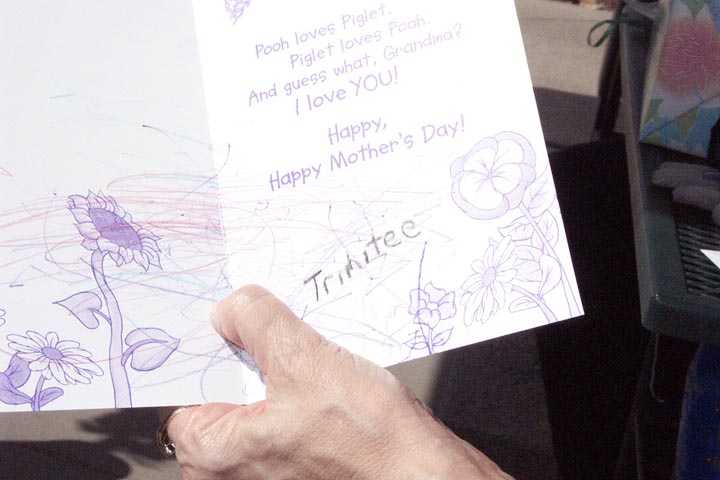 Pooh loves Piglet.
Piglet loves Pooh.
And guess what, Grandma?
I love YOU!
Happy,
Happy Mother's Day!
Trinitee